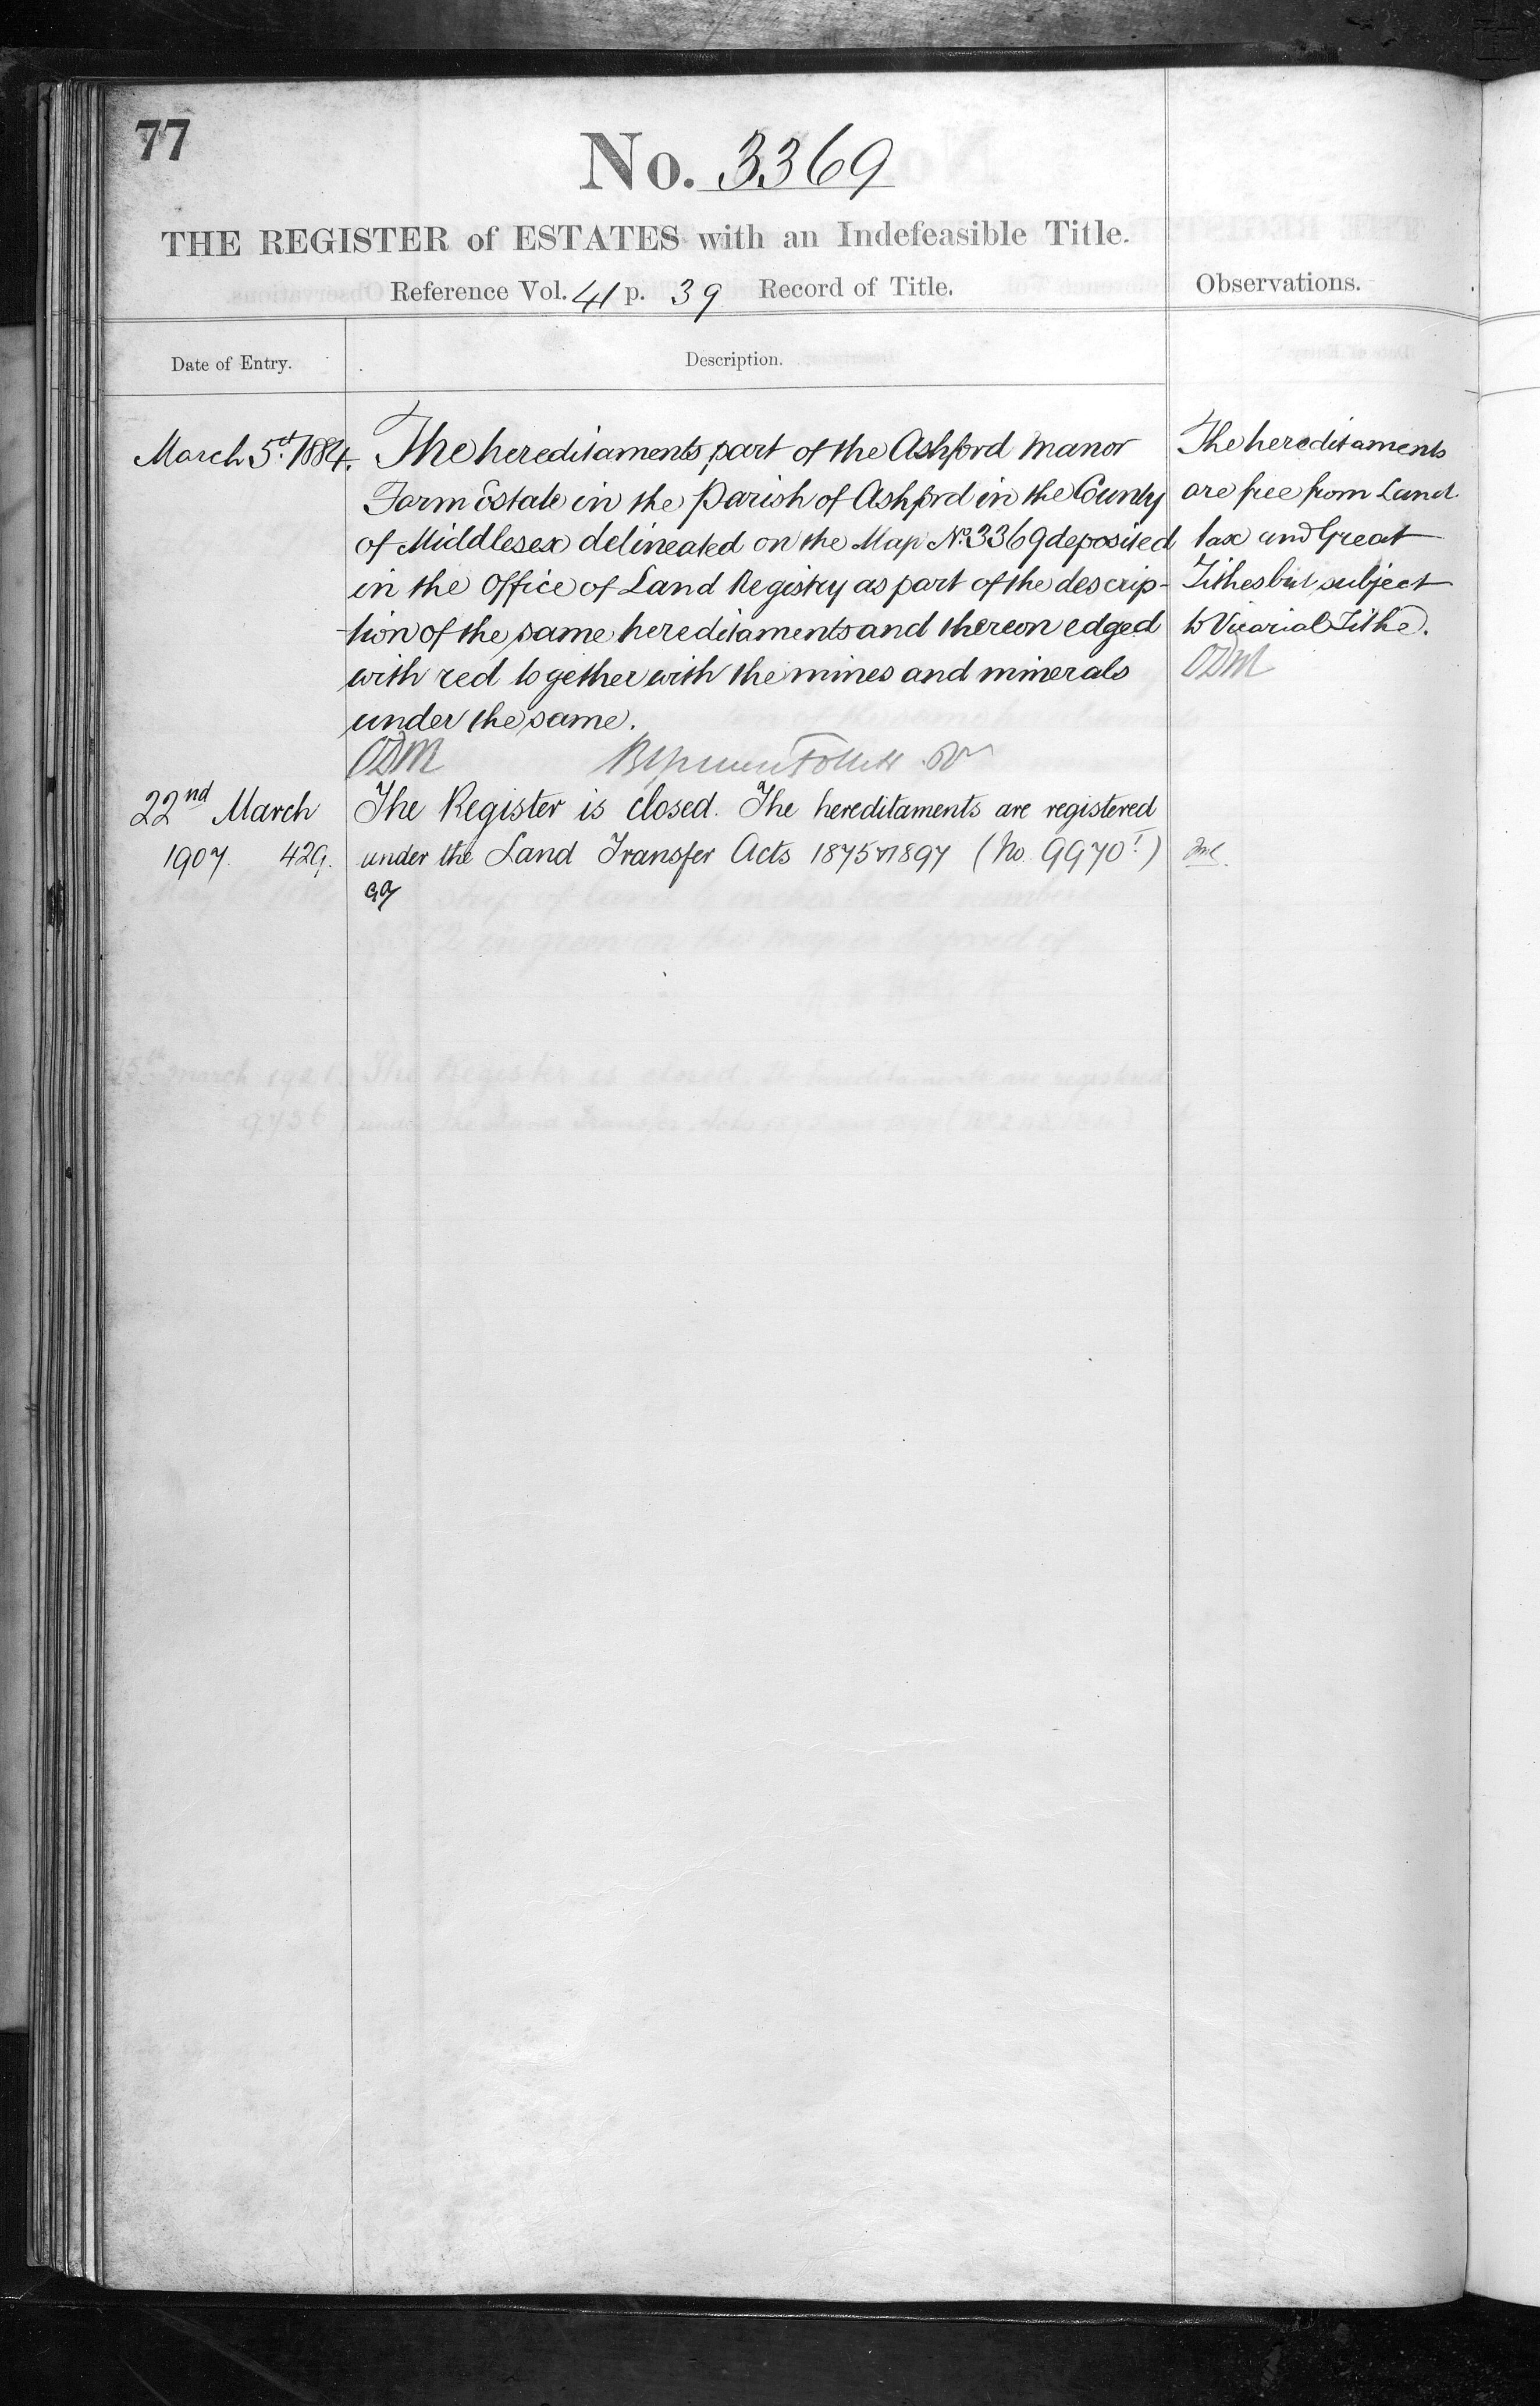 77
No. 3369
THE REGISTER of ESTATES with an Indefeasible Title.
Reference Vol. 41 p. 39 Record of Title.
Observations.
Date of Entry.
Description.
March 5th 1884.
The hereditaments, part of the Ashford Manor
Farm Estate in the Parish of Ashford in the County
of Middlesex delineated on the Map No. 3369 deposited
in the Office of Land Registry as part of the descrip-
tion of the same hereditaments and thereon edged
with red together with the mines and minerals
under the same.
ODM
The hereditaments
are free from Land
tax and Great
Tithes but subject
to Vicarial Tithe.
ODM
22nd March
1907. 429.
The Register is closed. The hereditaments are registered
under the Land Transfer Acts 1875 & 1897 (No. 9970)